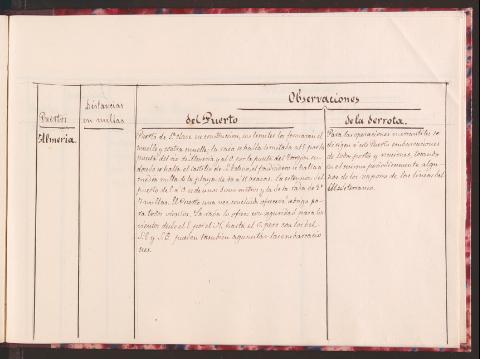 Observaciones
Puertos
Distancias
en millas
del Puerto
de la derrota.
Almeria.
Puerto de 2ª clase en construccion, sus limites los formaran el
muelle y contra muelle, la rada se halla limitada al E. por la
del rio de Almeria y al O. por la punta del
donde se halla el castillo de S. Telmo, el fondeadero se halla a
media milla de la playa de 10 a 11 brazas. La estension del
puerto de E a O es de unos metros y la de la rada de 2 a
3 millas. El Puerto una vez concluido ofrecerá abrigo pa
ra todos vientos. La rada lo ofrece con seguridad para los
vientos desde el E. por el N. hasta el O. pero con los del
S.O. y S.E. pueden tambien aguantar las embarcacio
nes.
Para las operaciones mercantiles se
dirigen á este Puerto embarcaciones
de todos portes y naciones, tocando
en el mismo periódicamente algu
nos de los vapores de las lineas del
Mediterraneo.